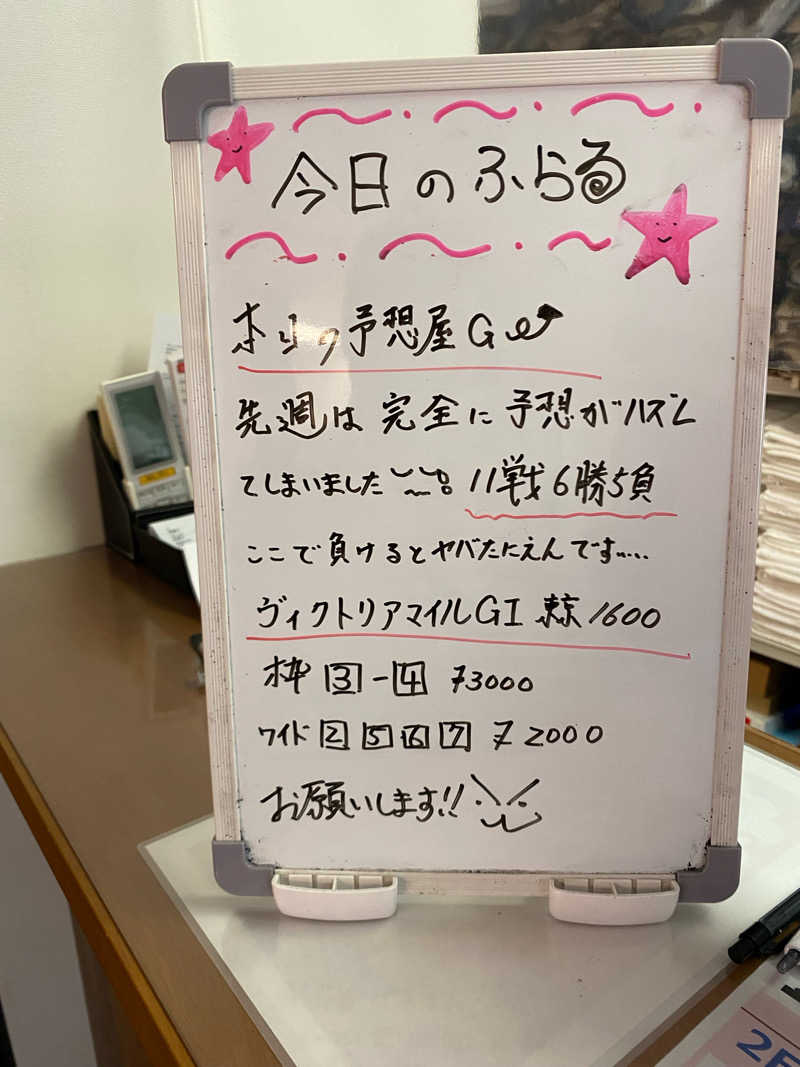 今日のふらる
予想屋G
先週は完全に予想がハズレ
てしまいました 11戦6勝5負
ここで負けるとヤバたにえんです……
ヴィクトリアマイルGI 東京1600
枠 3-4 ¥3000
ワイド 2 5 6 7 ¥2000
お願いします!!